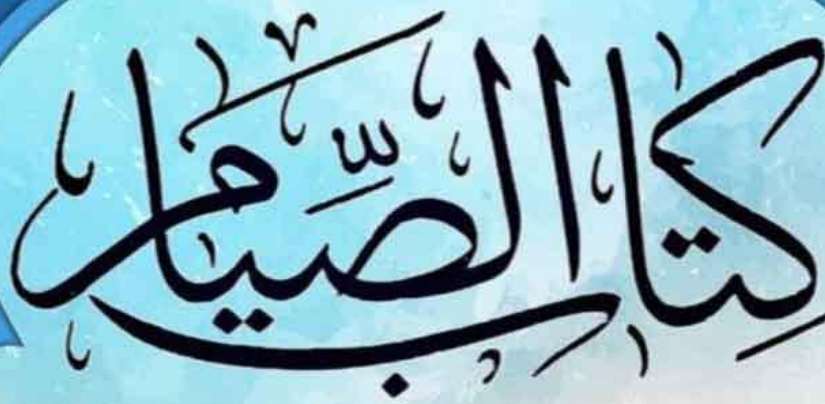 كتاب الصِّيام